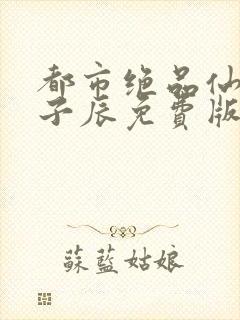 都市绝品仙
子辰免費版
蘇藍姑娘